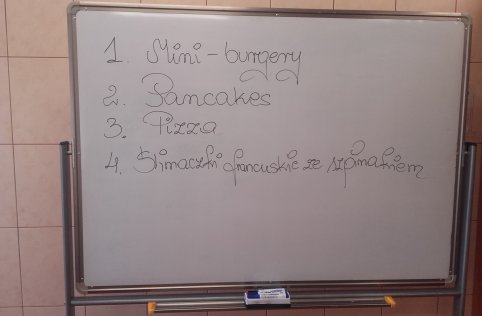 1. Mini-burgery
2. Pancakes
3. Pizza
4. Ślimaczki francuskie ze szpinakiem